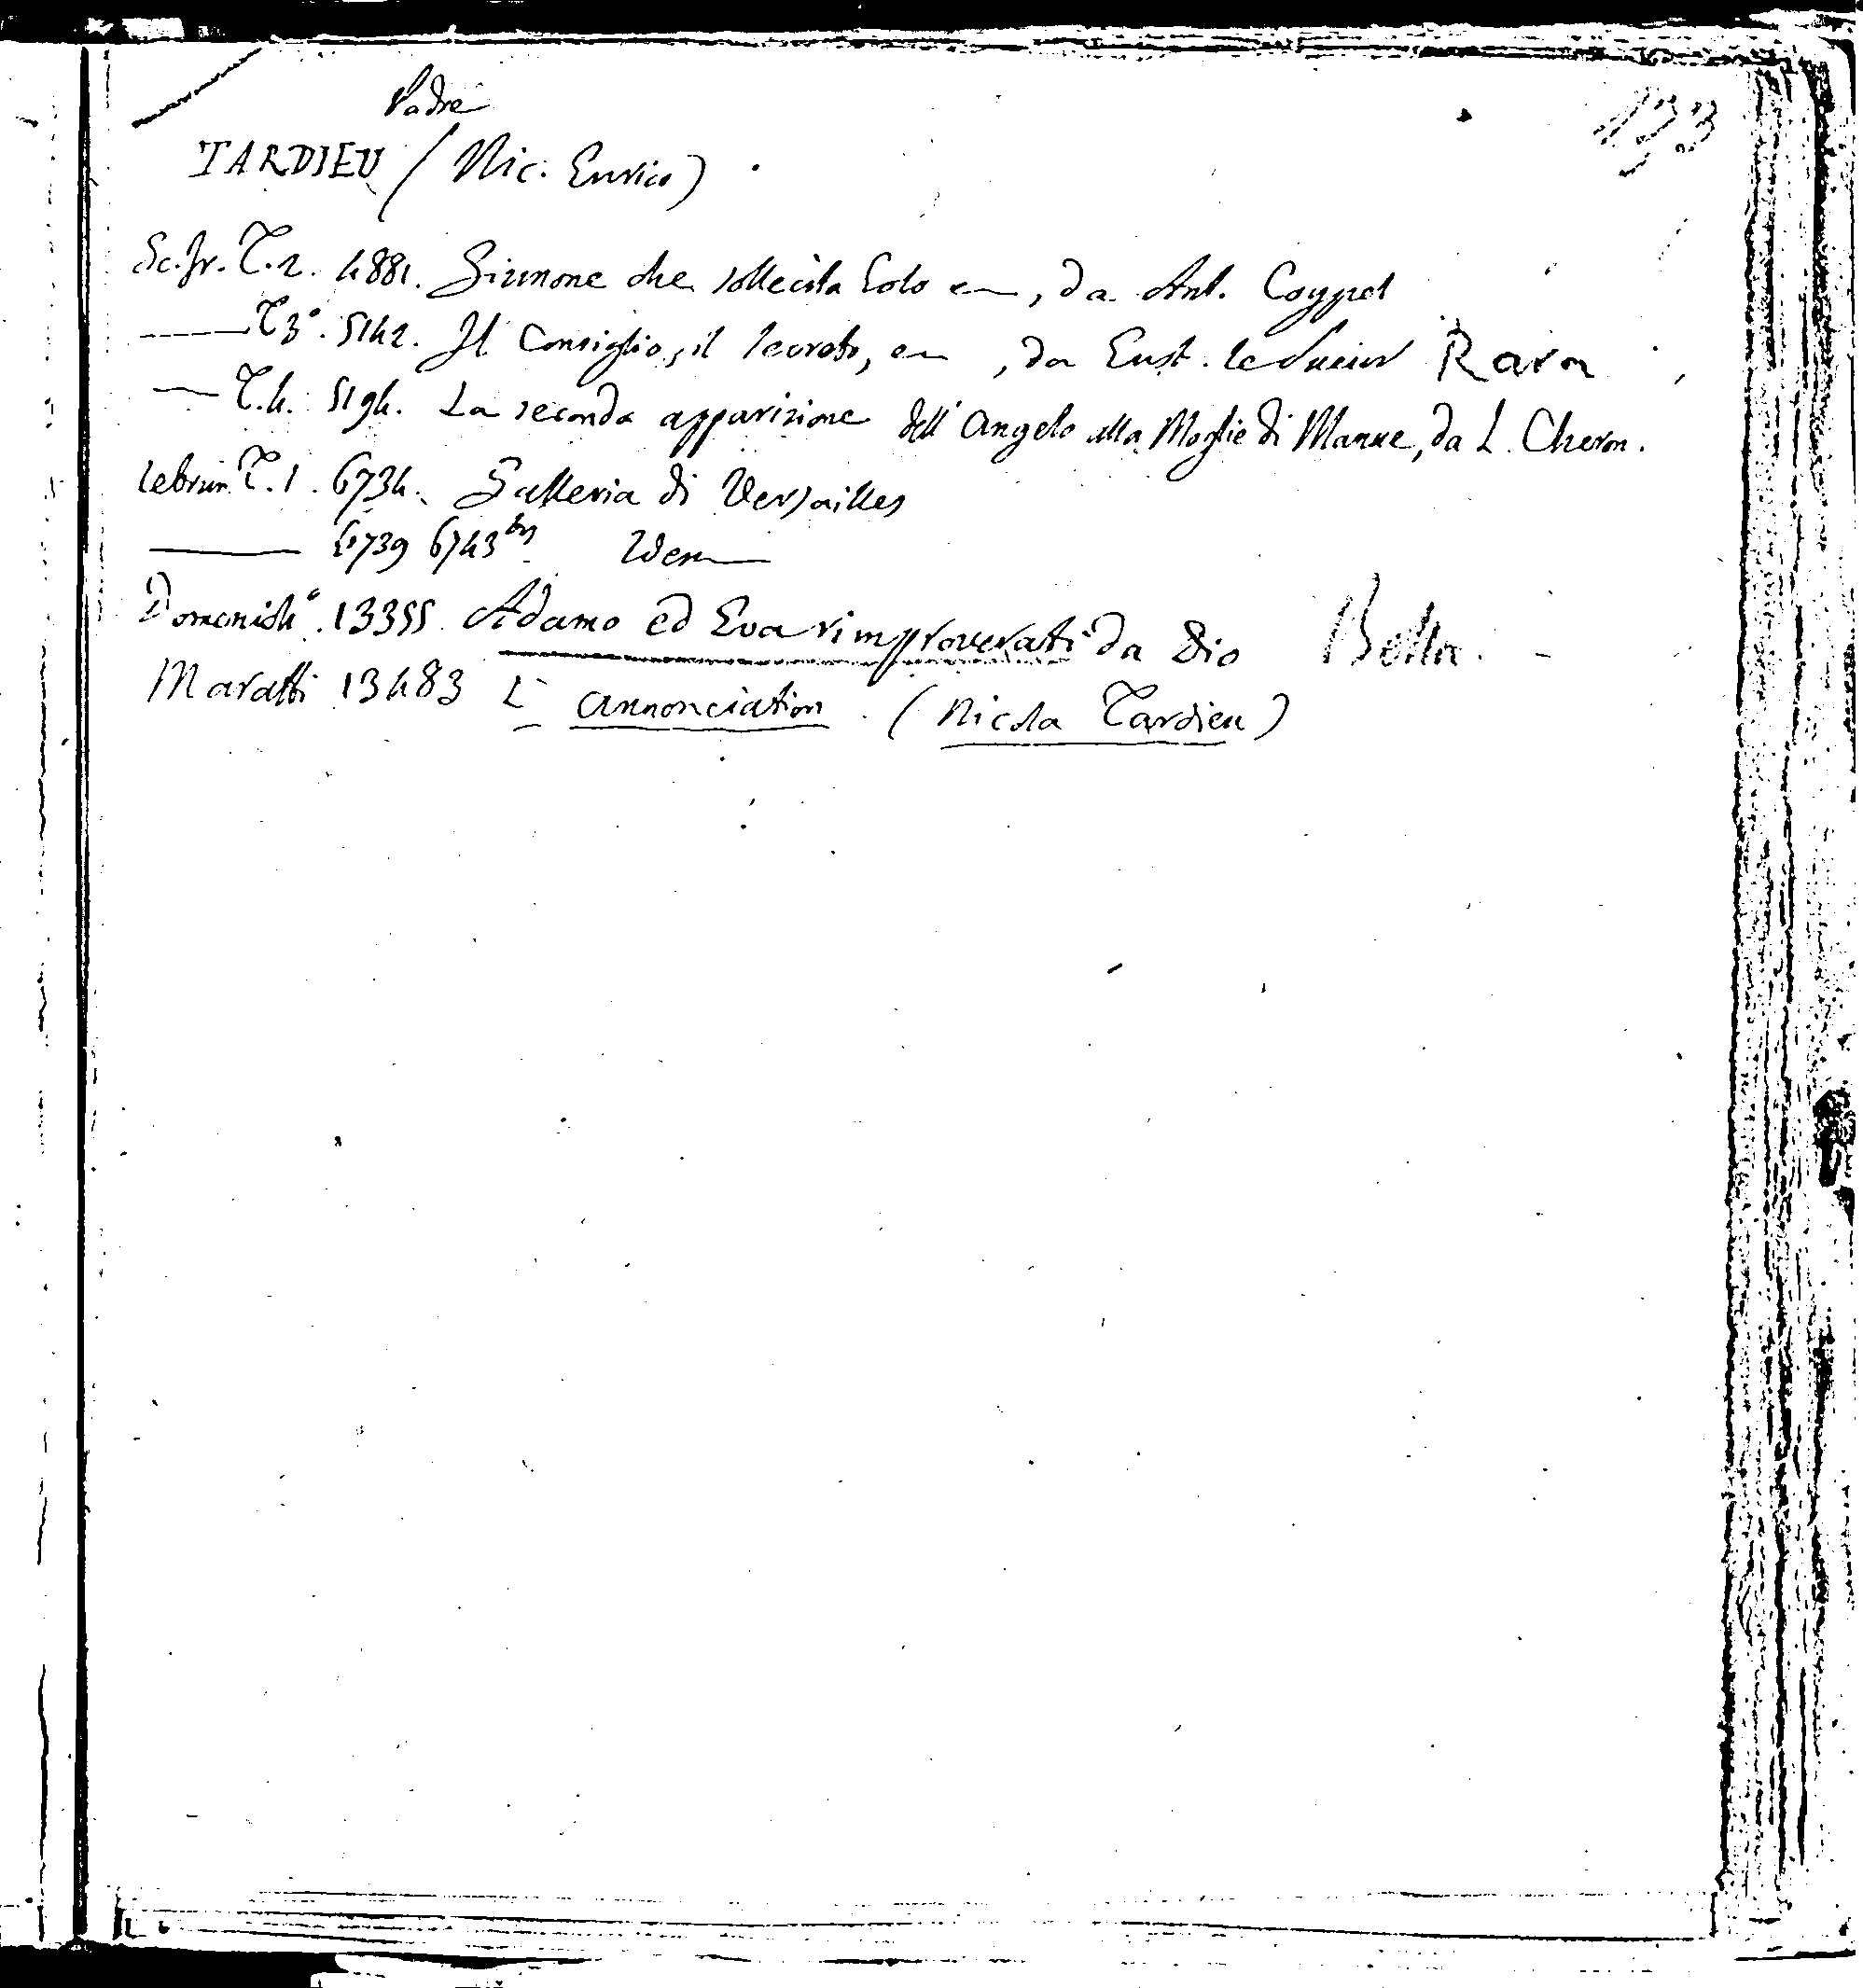 133
Padre
TARDIEU (Nic. Enrico)
Sc. fr. T. 2. 4881. Giunone che sollecita Eolo, da Ant. Coypel
T 3°. 5142. Il Consiglio, il secreto, da Eust. le Sueur Rara
T. 4. 5194. La seconda apparizione dell' Angelo alla Moglie di Manue, da L. Cheron.
lebrun T. 1. 6734. Galleria di Versailles
6739 6743 bis Idem
Domenich° 13355. Adamo ed Eva rimproverati da Dio Bella.
Maratti 13483 L' annonciation (Nicola Tardieu)